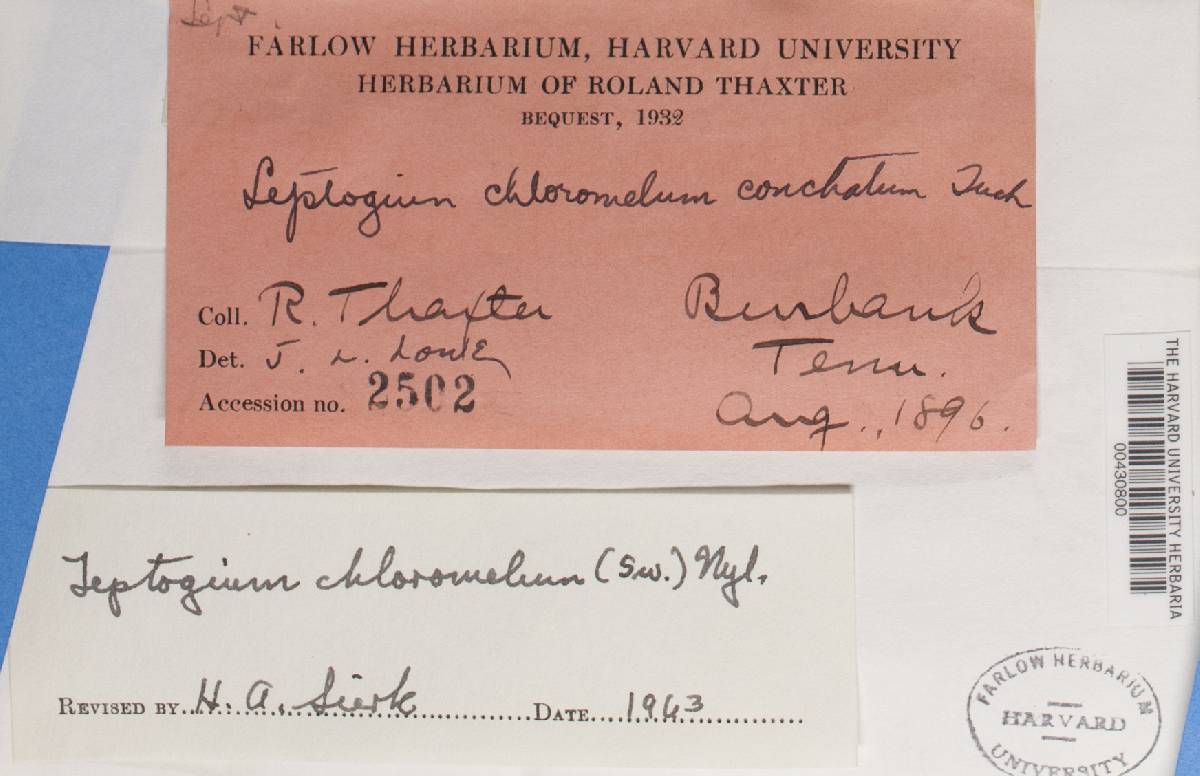 Lept
FARLOW HERBARIUM, HARVARD UNIVERSITY
HERBARIUM OF ROLAND THAXTER
BEQUEST, 1932
Leptogium chloromelum conchatum Tuck
Coll. R. Thaxter
Burbank
Det. J. L. Lowe
Tenn.
Accession no. 2502
Aug., 1896.
Leptogium chloromelum (Sw.) Nyl.
REVISED BY H. A. Sierk DATE 1963
THE HARVARD UNIVERSITY HERBARIA
00430800
FARLOW HERBARIUM
HARVARD
UNIVERSITY